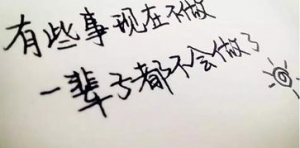 有些事现在不做
一辈子都不会做了